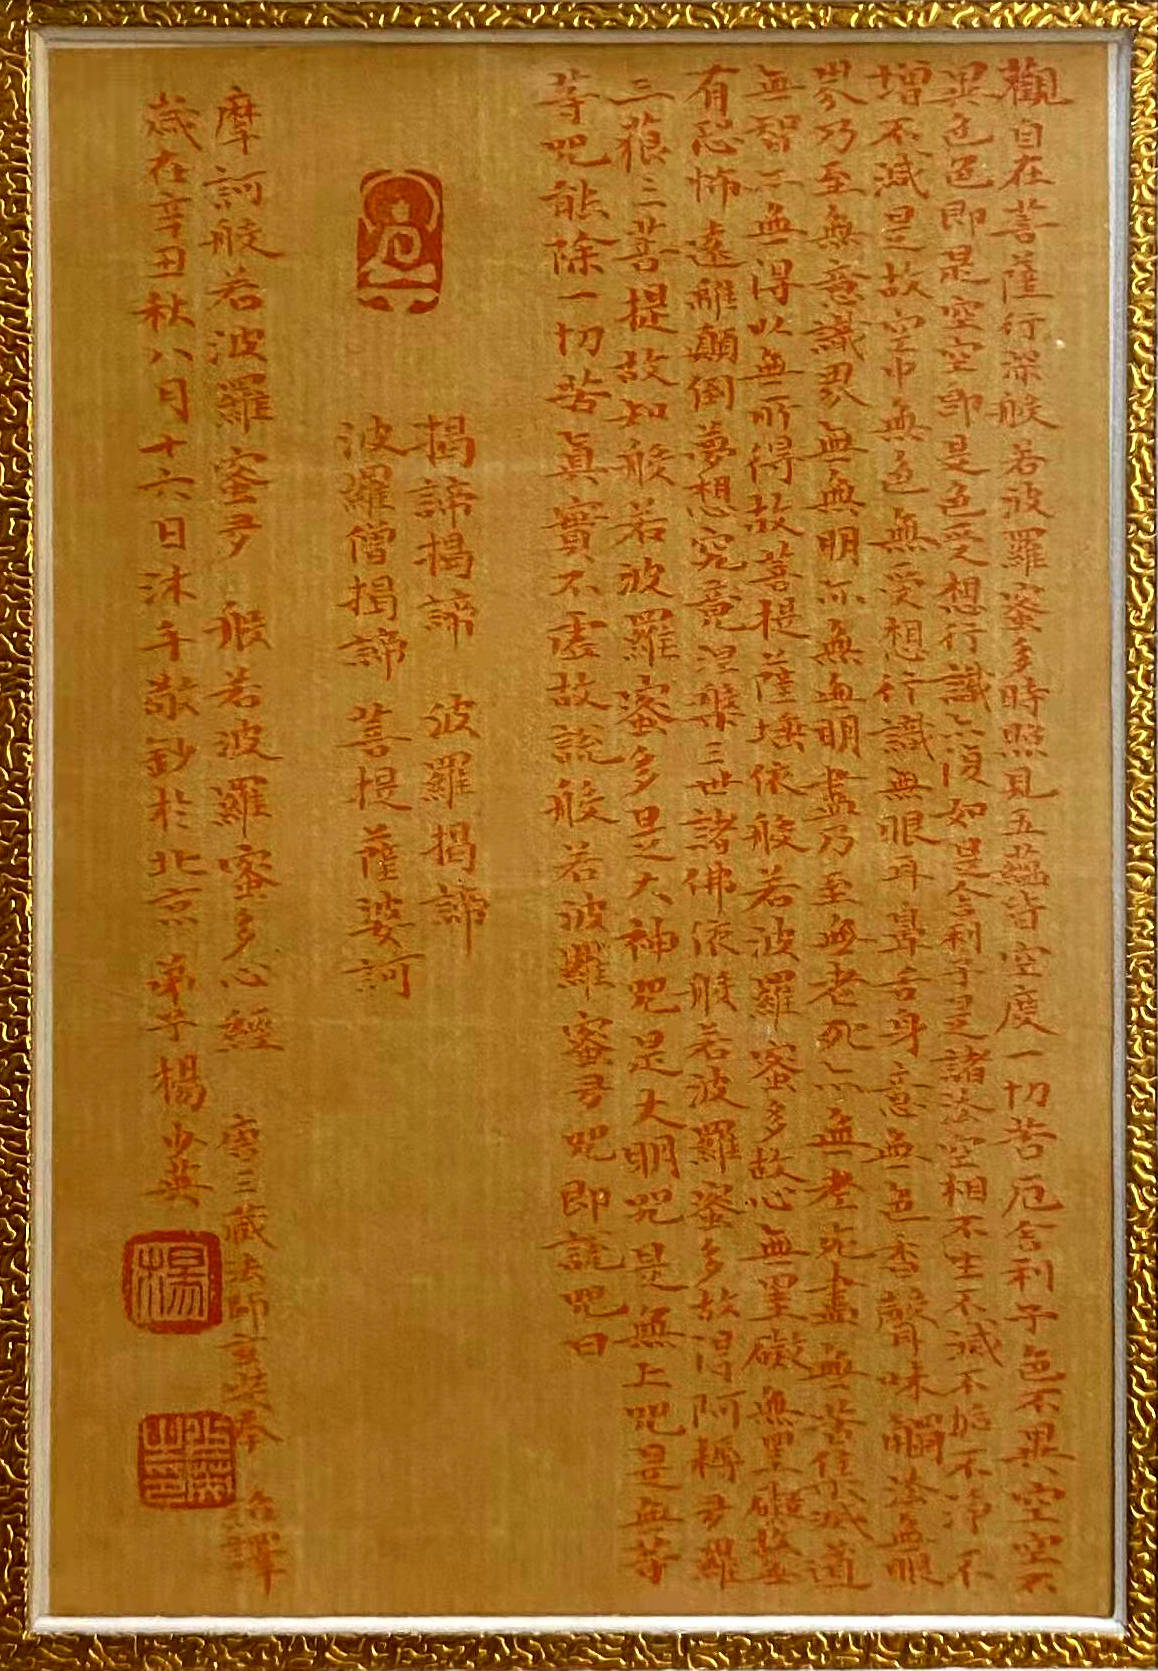 觀自在菩薩行深般若波羅蜜多時照見五蘊皆空度一切苦厄舍利子色不異空空不
異色色即是空空即是色受想行識亦復如是舍利子是諸法空相不生不滅不垢不淨不
增不減是故空中無色無受想行識無眼耳鼻舌身意無色香聲味觸法無眼
界乃至無意識界無無明亦無無明盡乃至無老死亦無老死盡無苦集滅道
無智亦無得以無所得故菩提薩埵依般若波羅蜜多故心無罣礙無罣礙故無
有恐怖遠離顛倒夢想究竟涅槃三世諸佛依般若波羅蜜多故得阿耨多羅
三藐三菩提故知般若波羅蜜多是大神咒是大明咒是無上咒是無等
等咒能除一切苦真實不虛故說般若波羅蜜多咒即說咒曰
揭諦揭諦 波羅揭諦
波羅僧揭諦 菩提薩婆訶
摩訶般若波羅蜜多 般若波羅蜜多心經 唐三藏法師玄奘奉 詔譯
歲在辛丑秋八月十六日沐手敬鈔於北京 弟子楊少英
楊